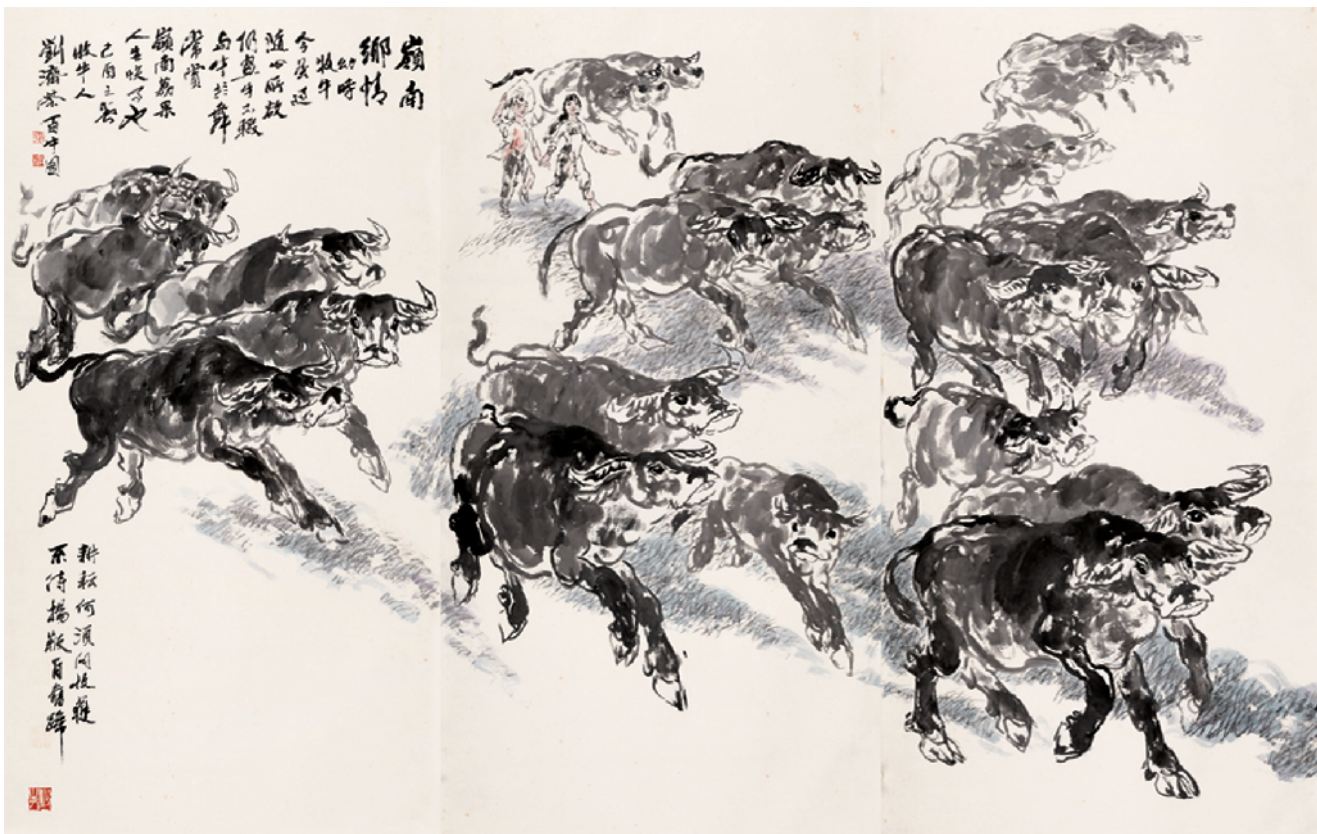 嶺南
鄉情
幼時
牧牛
今
隨心所欲
仍畫牛不輟
與牛共舞
常賞
嶺南荔果
人生快事也
牧牛人
劉濟榮百牛圖
耕耘何須問收獲
不待揚鞭自奮蹄